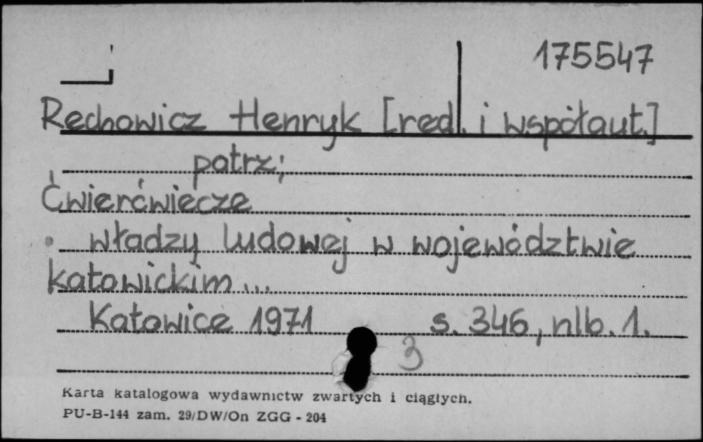 175547
Rechowicz Henryk [red. i współaut.]
patrz:
Ćwierćwiecze
władzy ludowej w województwie
katowickim...
Katowice 1971 s. 346, nlb. 1.
3
Karta katalogowa wydawnictw zwartych i ciągłych.
PU-B-144 zam. 29/DW/On ZGG - 204